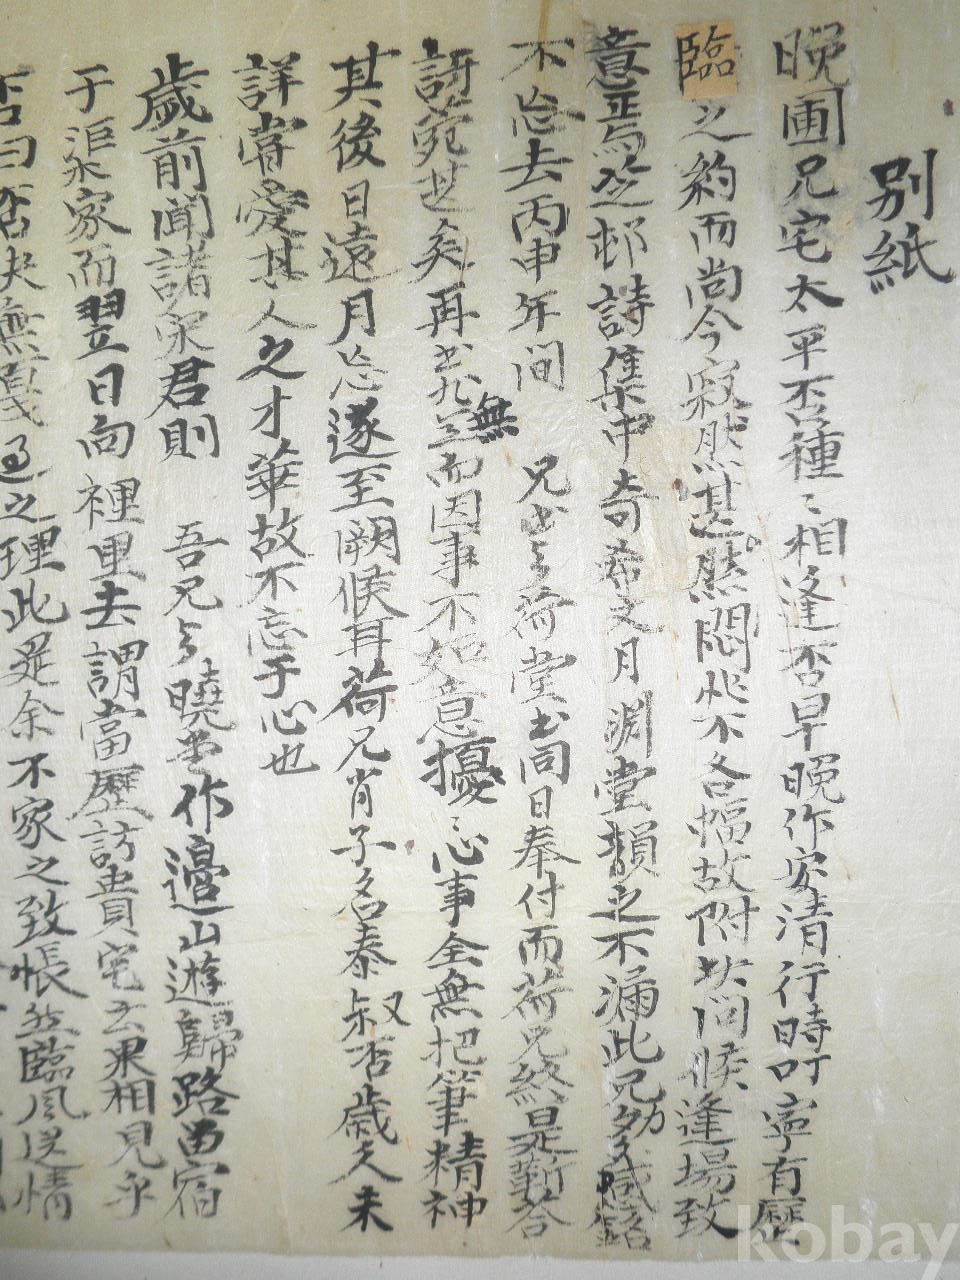 別紙
晩圃兄宅太平否種〻相逢否早晩作安淸行時叮寧有歷
臨之約而尙今寂然甚然悶此不各幅故附此問候逢場致
意焉 詩集中奇希之月淵堂韻之不漏此兄
不忘去丙申年间 兄書與荷堂書同日奉付而荷兄終是靳答
訝菀甚矣再書 無 而因事不如意擾〻心事全無把筆精神
其後日遠月忘遂至闕候耳荷兄肖子名泰叔否歲久未
詳嘗愛其人之才華故不忘于心也
歲前聞諸家君則 吾兄與曉堂作邊山遊歸路留宿
于渠家而翌日向裡里去謂當歷訪貴宅云果相見乎
否曰否決無 過之理此是余不家之致悵然臨風送情
kobay